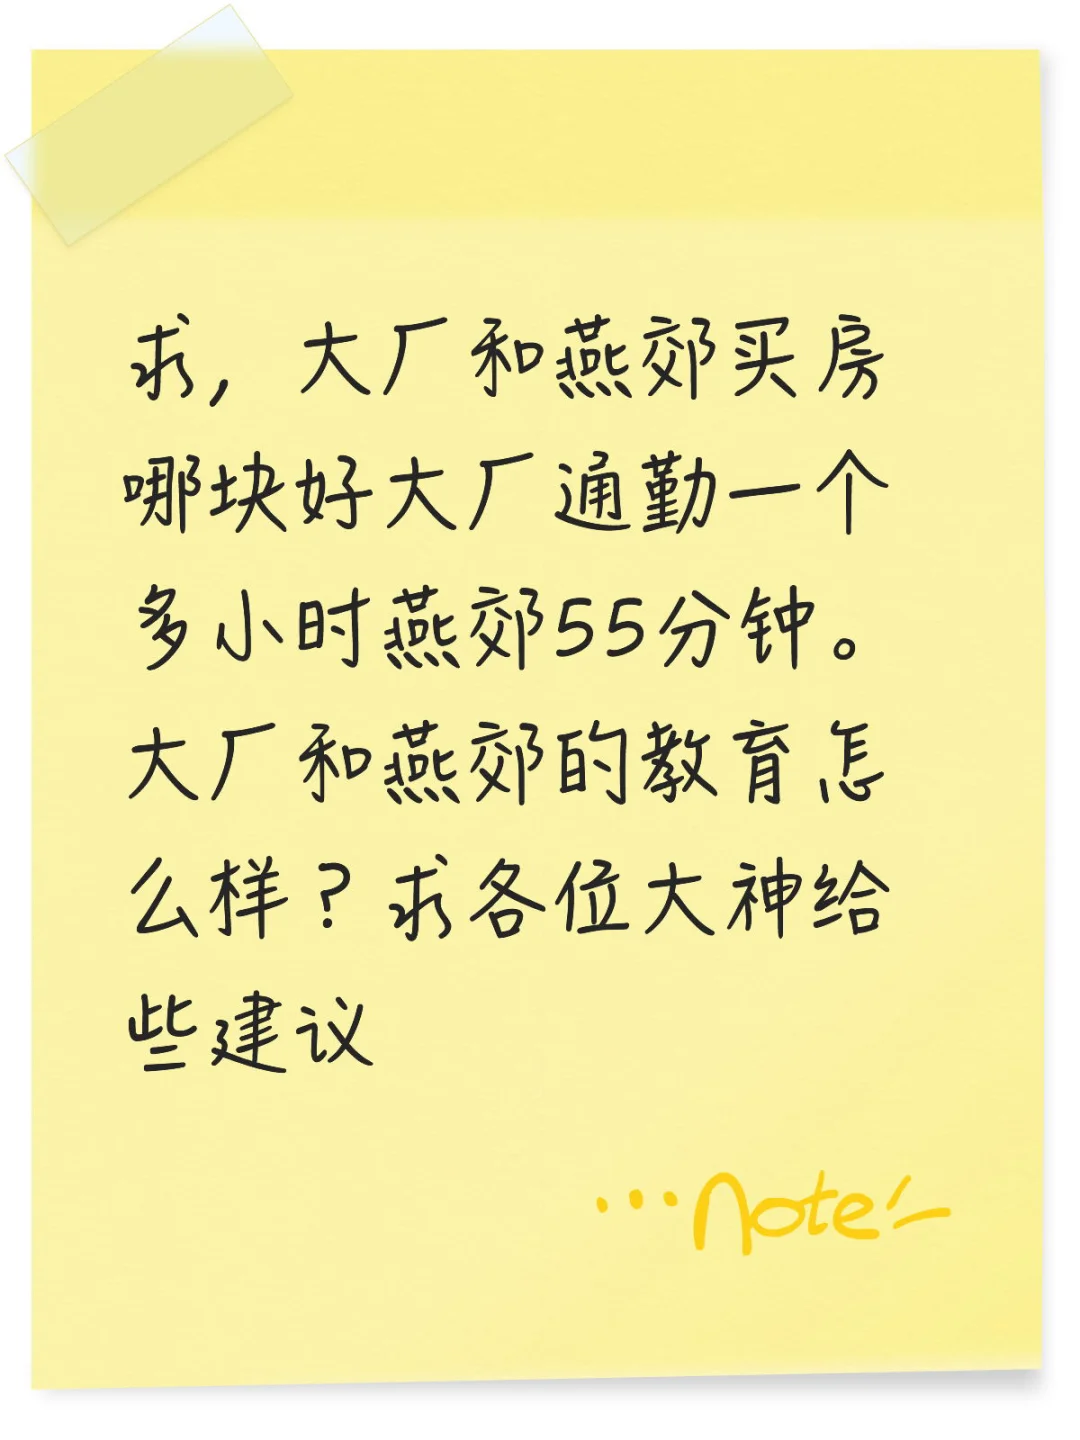 求，大厂和燕郊买房
哪块好大厂通勤一个
多小时燕郊55分钟。
大厂和燕郊的教育怎
么样？求各位大神给
些建议
...Note